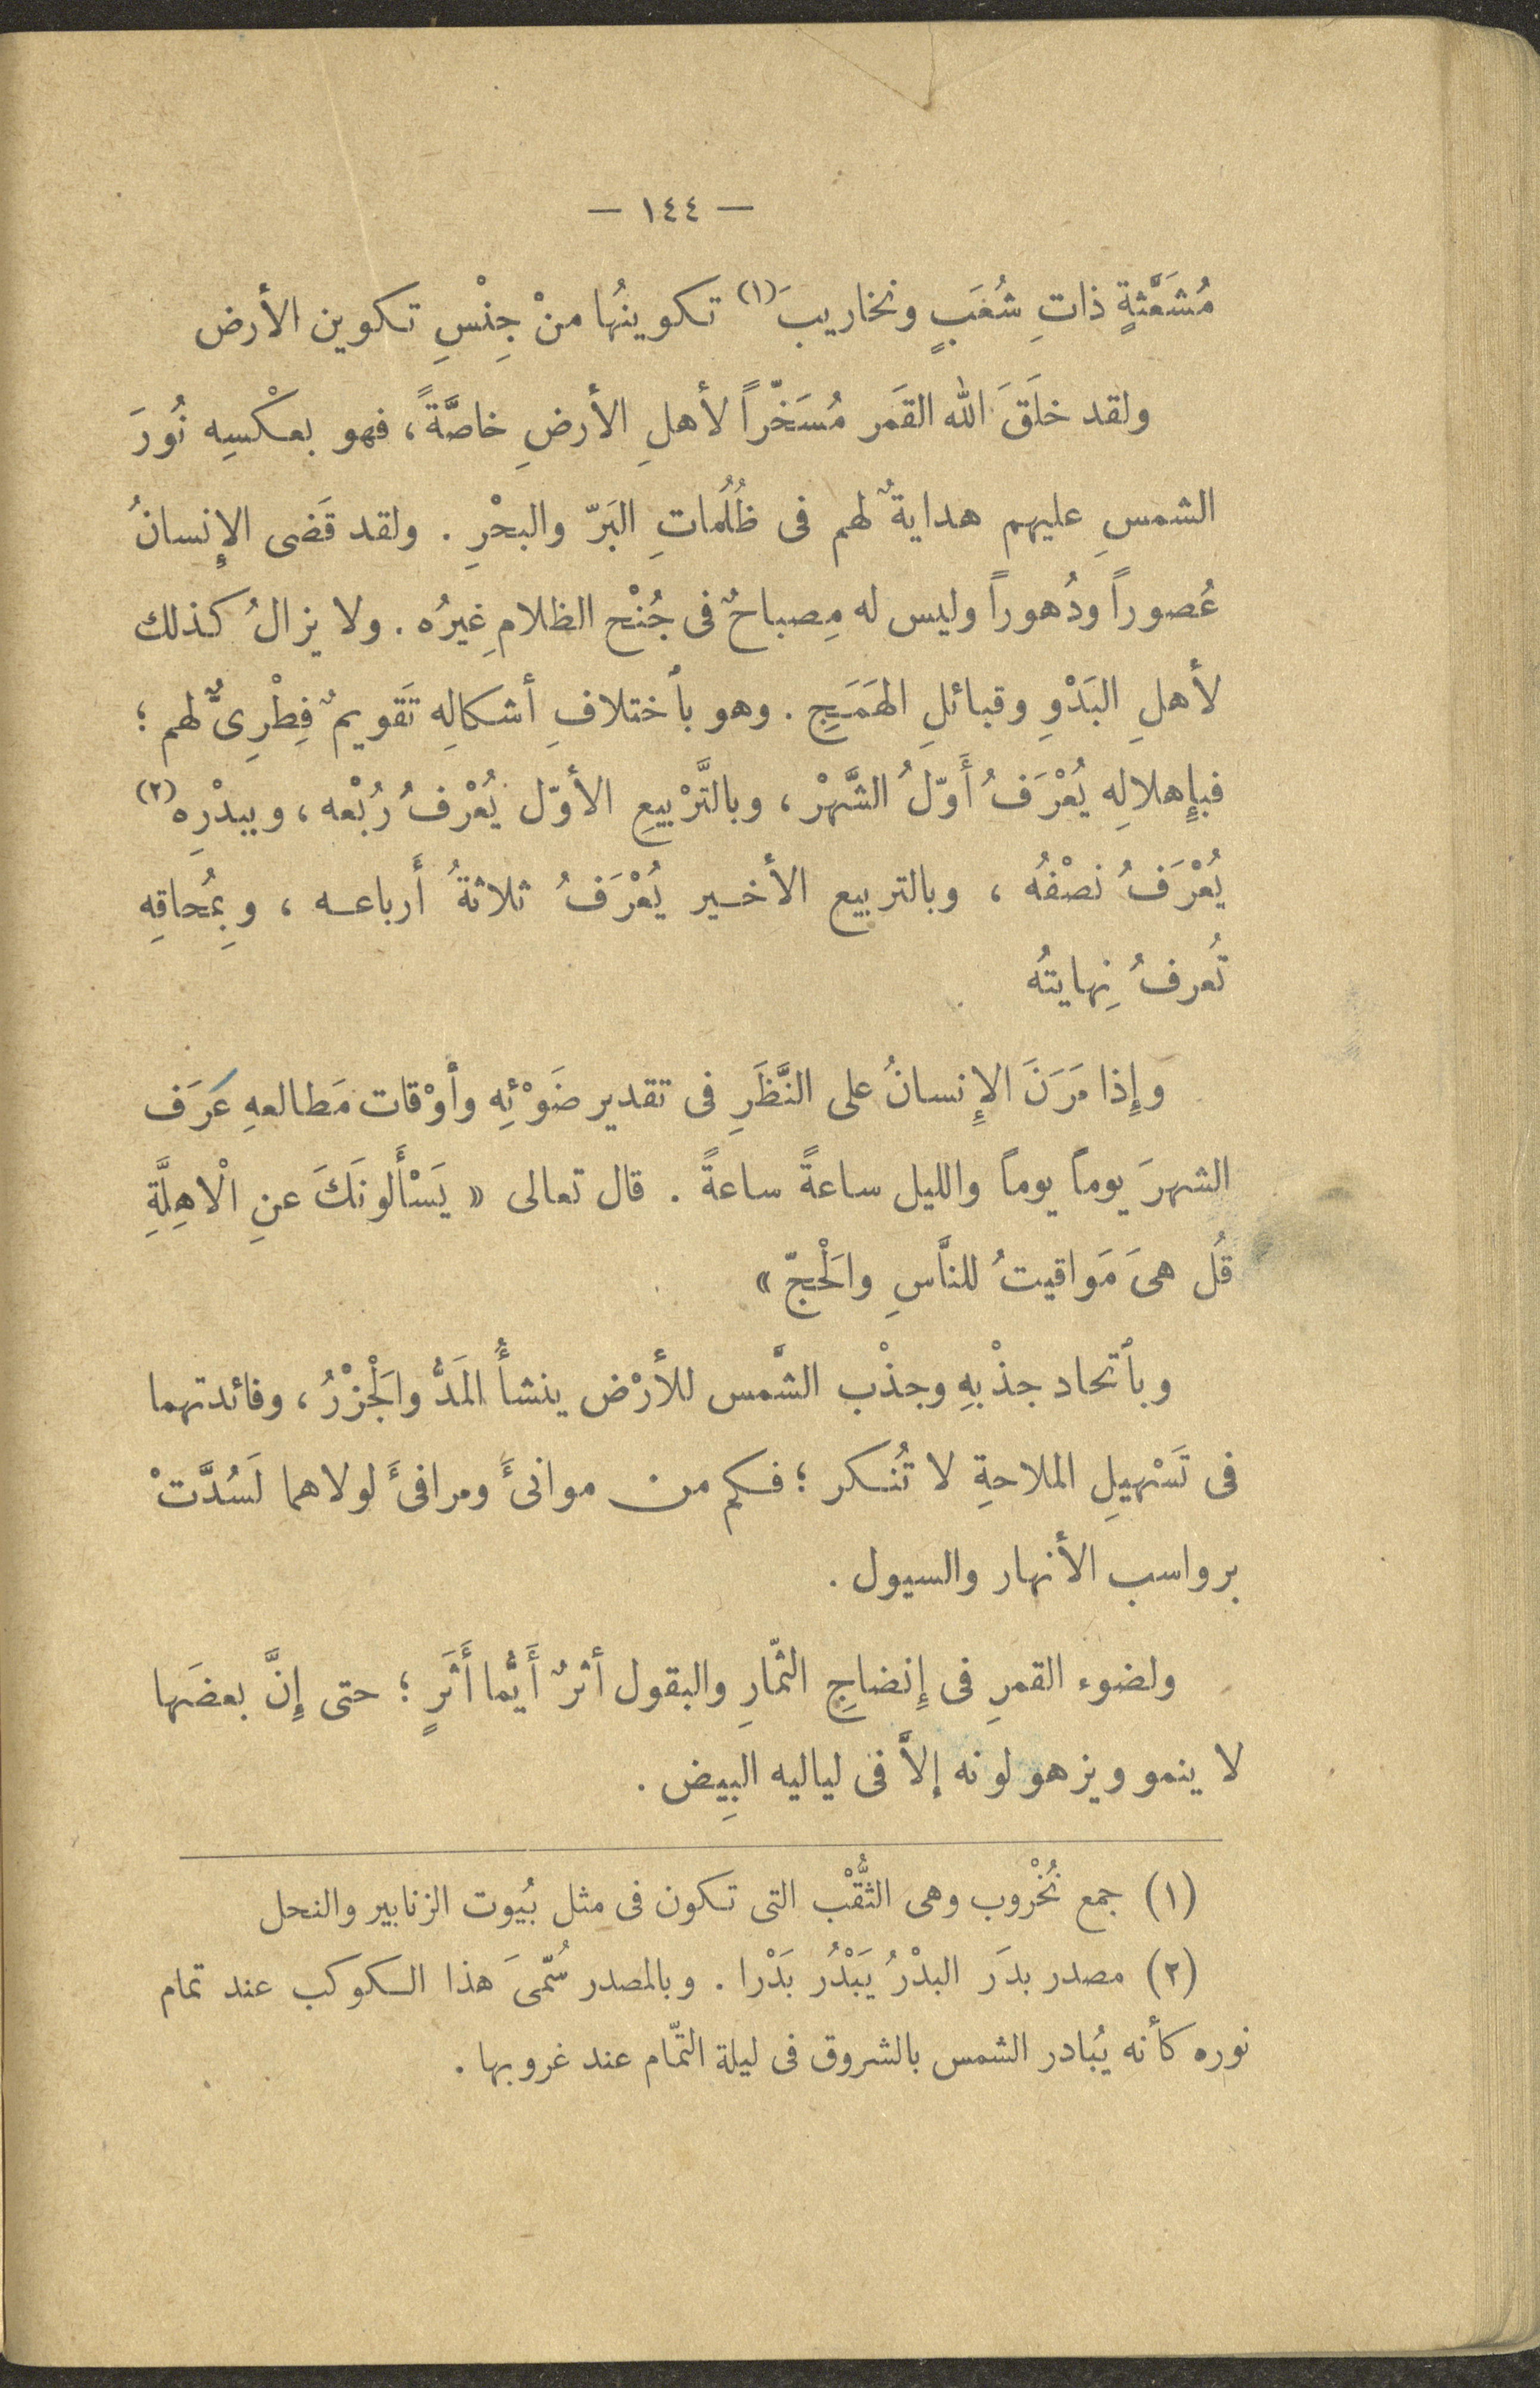 — ١٤٤ —
مُشَعَّثةٍ ذاتِ شُعَبٍ ونخاريبَ (١) تكوينُها منْ جِنْسِ تكوين الأرض
ولقد خلَقَ الله القمَر مُسَخّراً لأهلِ الأرضِ خاصَّةً، فهو بعكْسِه نُورَ
الشمسِ عليهم هدايةٌ لهم فى ظُلُماتِ البَرّ والبحْرِ . ولقد قَضى الإِنسانُ
عُصوراً ودُهوراً وليس له مِصباحٌ فى جُنْح الظلامِ غيرُه . ولا يزالُ كذلك
لأهلِ البَدْوِ وقبائلِ الهَمَجِ . وهو بأختلافِ أشكالِه تَقويمٌ فِطْرِىٌّ لهم ؛
فبإِهلالِه يُعْرَفُ أَوّلُ الشَّهرْ ، وبالتَّرْبيعِ الأوّل يُعْرفُ رُبْعه ، وببدْرِه (٢)
يُعْرَفُ نصْفُه ، وبالتربيع الأخير يُعْرَفُ ثلاثةُ أَرباعه ، وبِمُحاقِه
تُعرفُ نِهايتُه
وَإِذا مَرَنَ الإِنسانُ على النَّظَرِ فى تقدير ضَوْئِه وأوْقات مَطالعهِ عَرَف
الشهرَ يوماً يوماً والليل ساعةً ساعةً . قال تعالى « يَسْأَلونَكَ عنِ الْاهِلَّةِ
قُل هىَ مَواقيتُ للنَّاسِ والَحْجّ »
وبأتحاد جذْبهِ وجذْب الشَّمس للأرْض ينشأُ المَدُّ والَجْزْرُ ، وفائدتهما
فى تَسْهيلِ الملاحةِ لا تُنكر ؛ فكم من موانئَ ومرافئَ لولاهما لَسُدَّتْ
برواسب الأنهار والسيول .
ولضوء القمرِ فى إِنضاجِ الثمّارِ والبقول أثرٌ أَيُّما أَثَرٍ ؛ حتى إِنَّ بعضَها
لا ينمو ويزهو لونه إلاَّ فى لياليه البِيض .
(١) جمع نُخْروب وهى الثُّقْب التى تكون فى مثل بُيوت الزنابير والنحل
(٢) مصدر بدَر البدْرُ يَبْدُر بَدْرا . وبالمصدر سُمّىَ هذا الكوكب عند تمام
نوره كأنه يُبادر الشمس بالشروق فى ليلة التمّام عند غروبها .